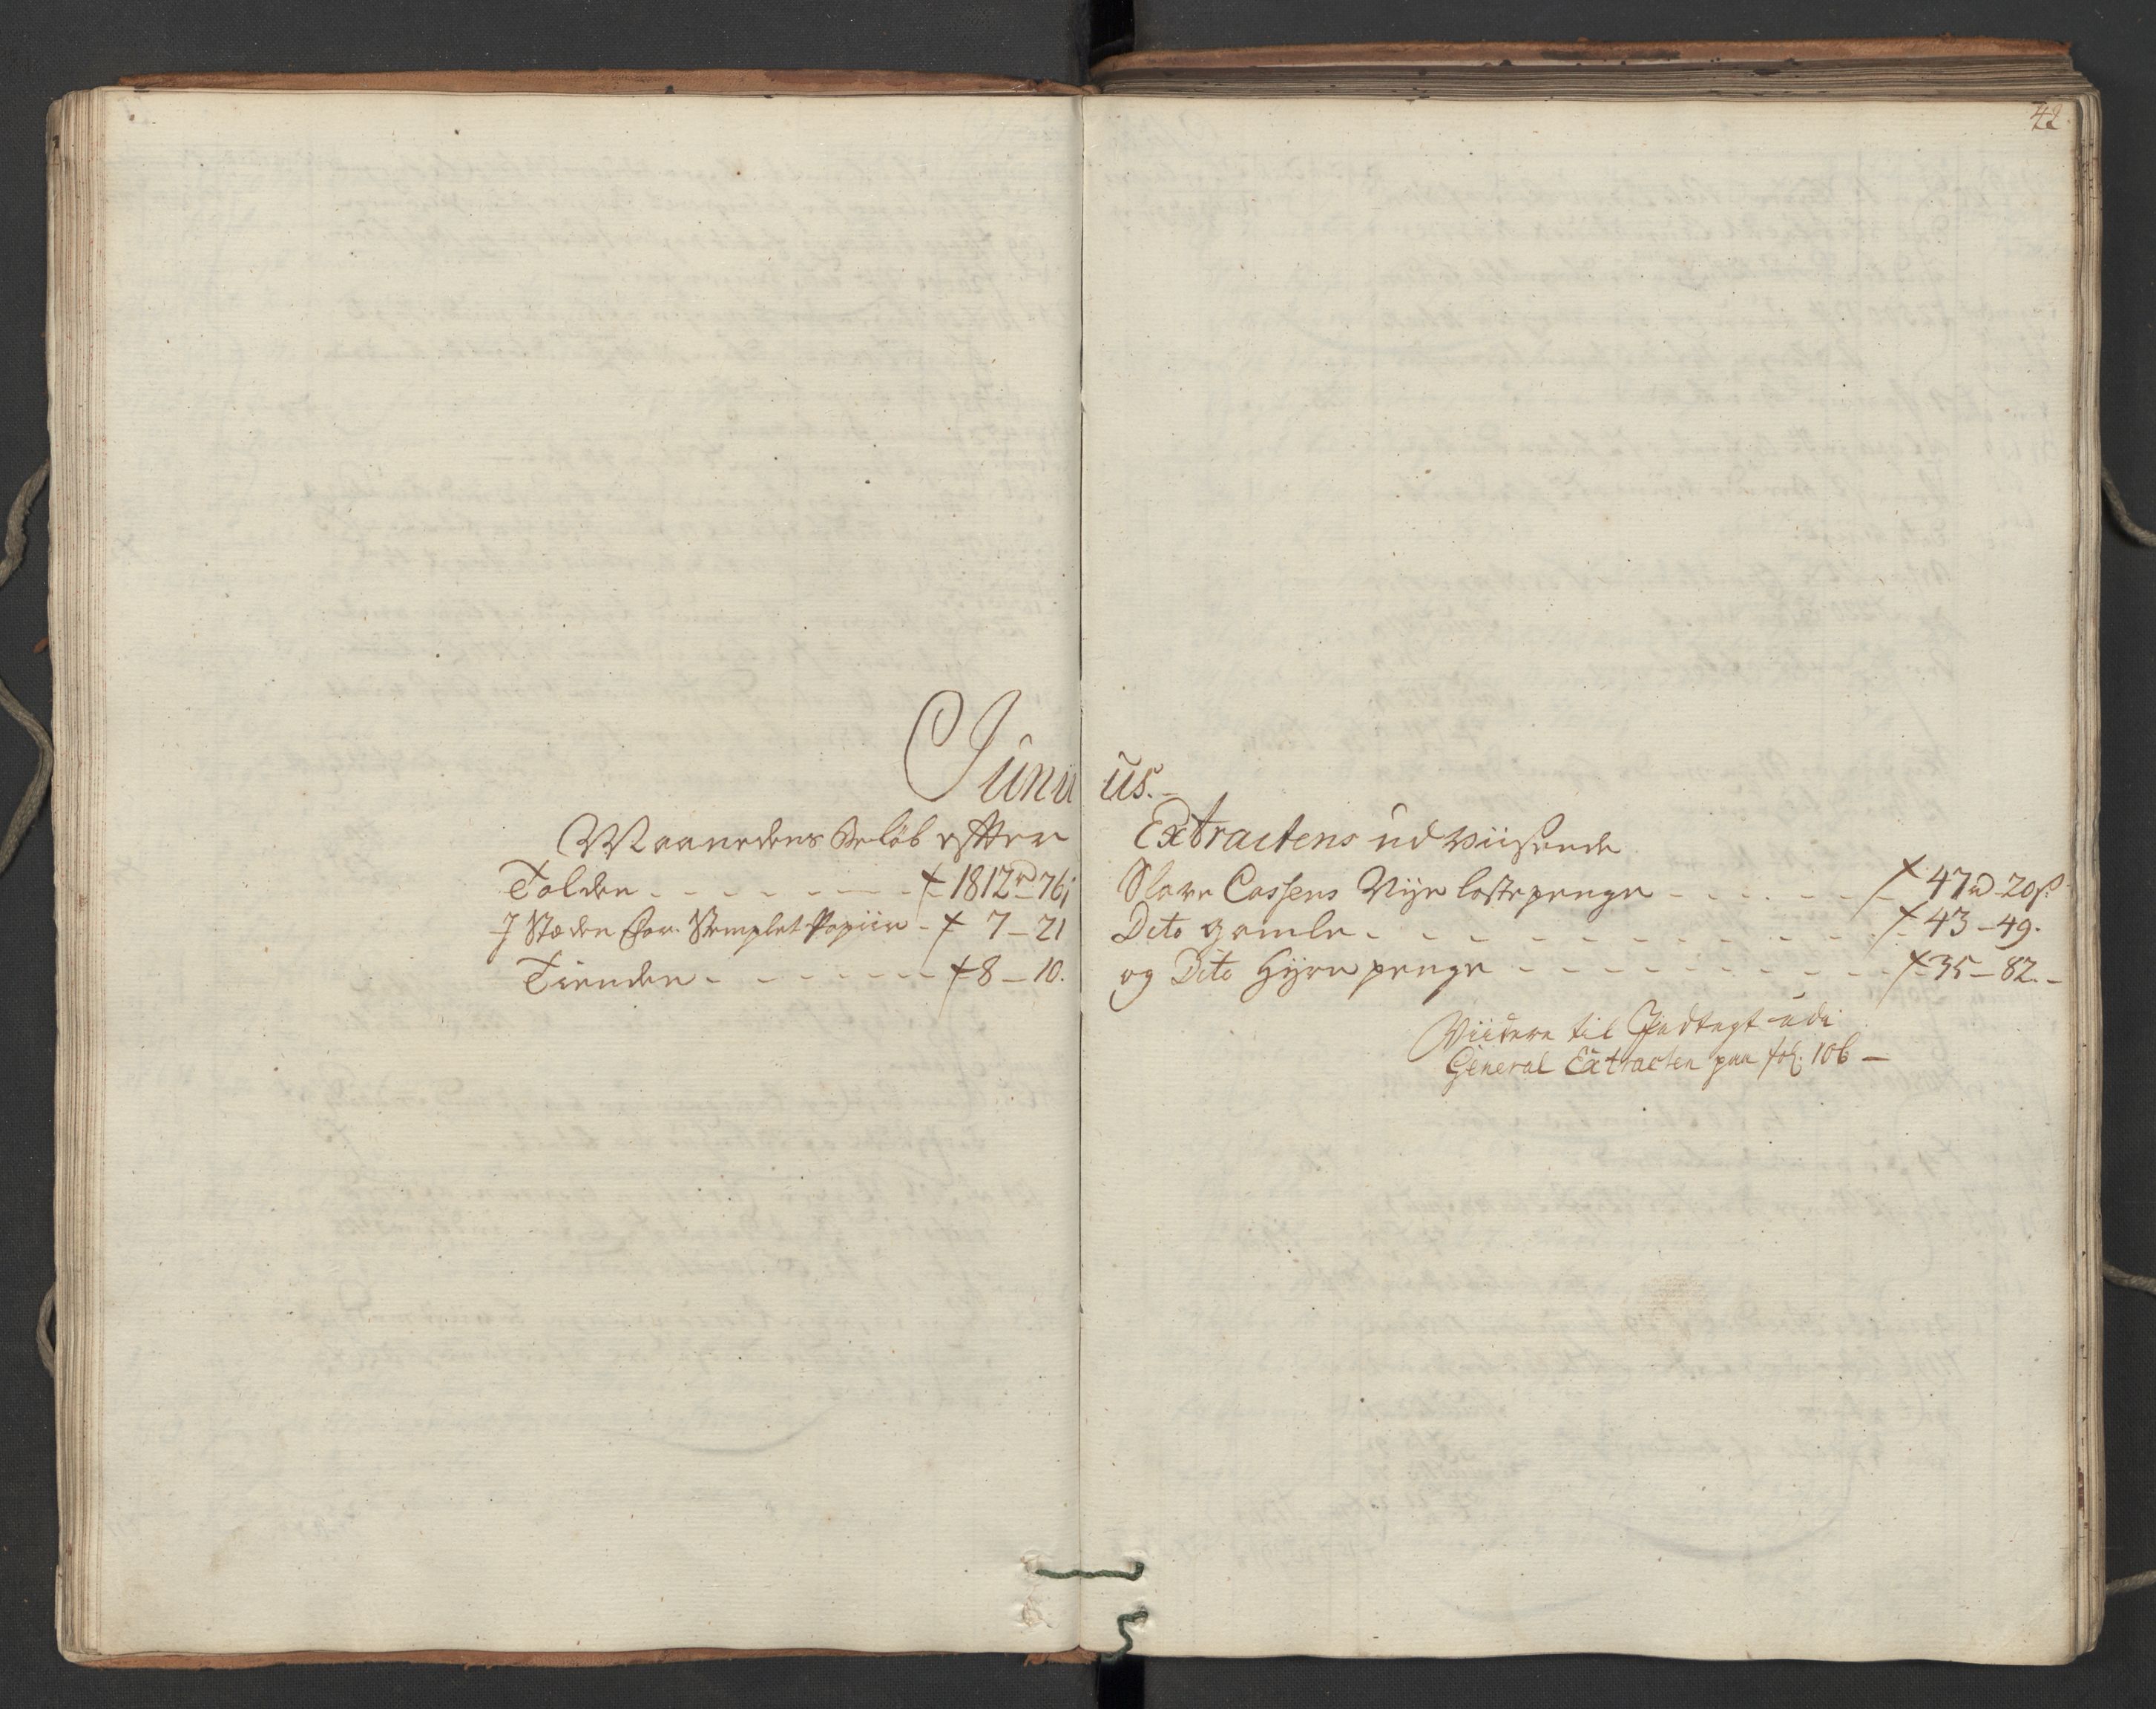 42.
Juniius.
Maanedens Beløb efter Extractens udviisende
Tolden - - - - - - - 1812 rd 76 ß
J Stæden for Stemplet Papiir - 7 - 21
Tienden - - - - - - - 8 - 10.
Slave Cassens Nÿe lastepenge - - - - - - 47 rd 20 ß.
Dito gamle - - - - - - - - - - - - 43 - 49.
og Dito Hÿrepenge - - - - - - - - - - 35 - 82. -
Viidere til Indtægt udi
General Extracten paa fol: 106 -